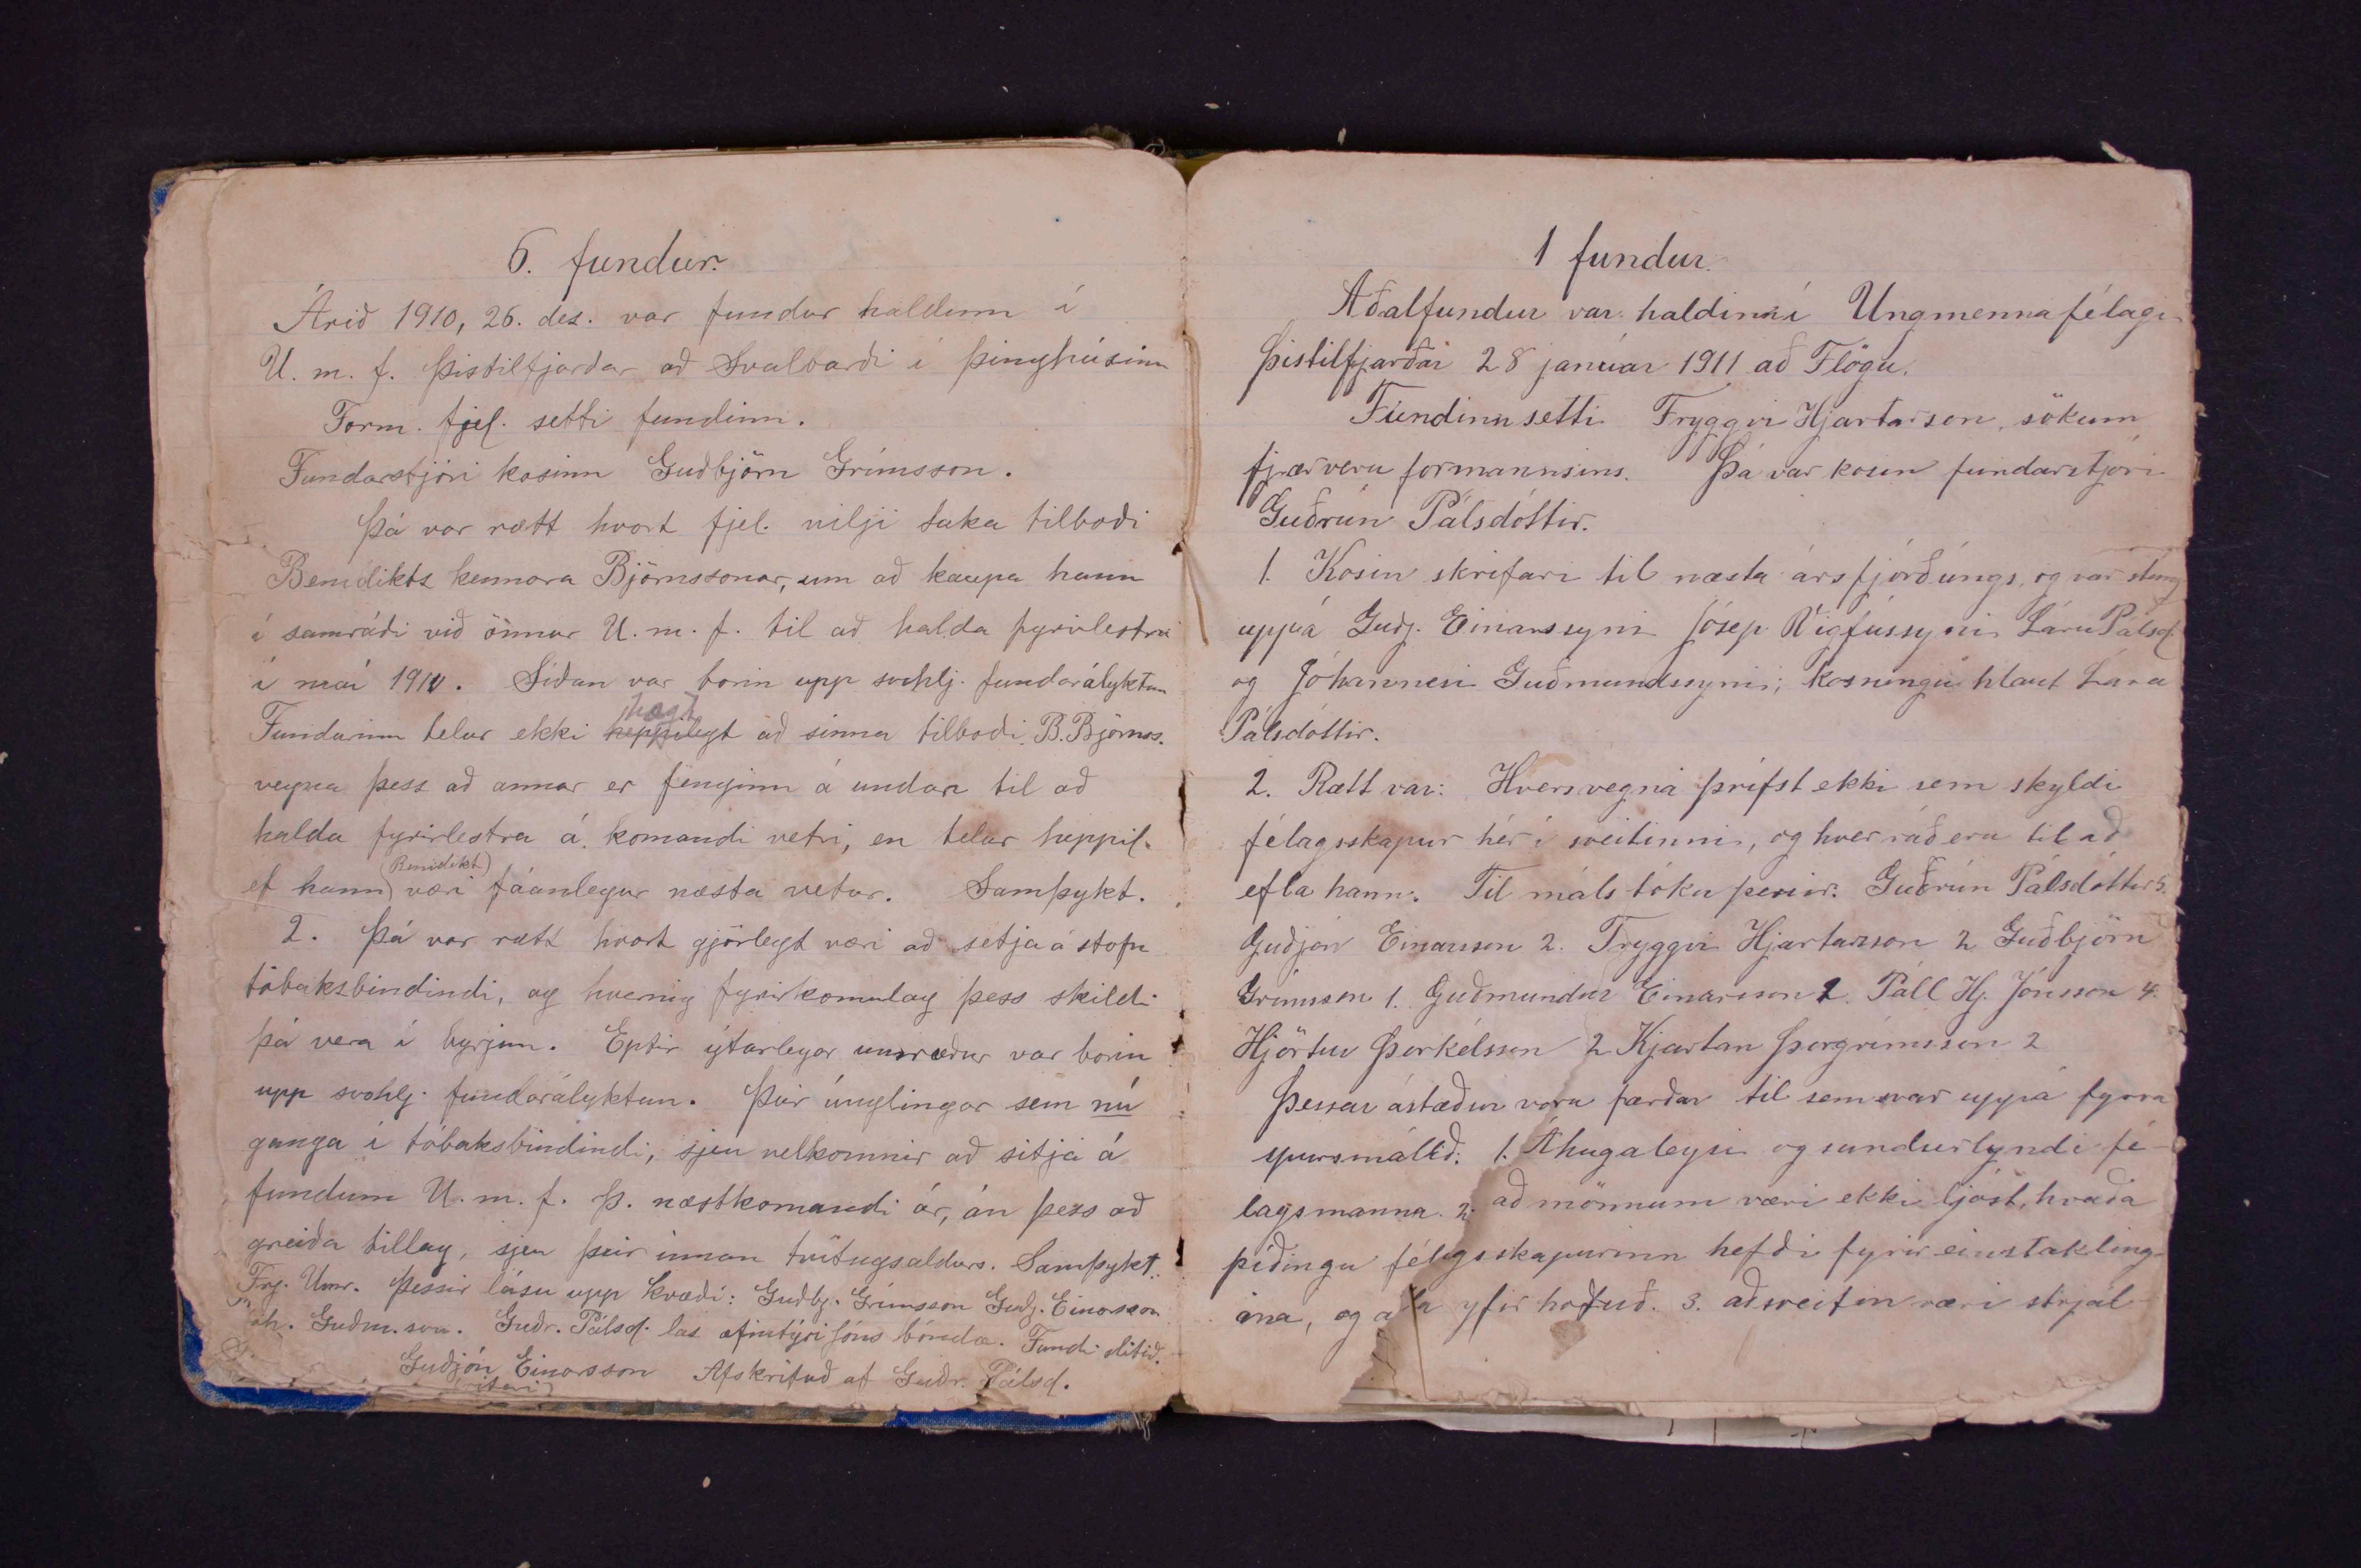 6. fundur.
Árið 1910, 26. des. var fundur haldinn í
U. m. f. Þistilfjarðar að Svalbarði í þinghúsinu
Form. fjel. setti fundinn.
Fundarstjóri kosinn Guðbjörn Grímsson.
Þá var rætt hvort fjel. vilji taka tilboði
Benidikts kennara Björnssonar, um að kaupa hann
í samráði við önnur U. m. f. til að halda fyrirlestra
í maí 1910. Síðan var borin upp svohlj. fundarályktun
Fundurinn telur ekki hægt að sinna tilboði B. Björnss.
vegna þess að annar er fenginn á undan til að
halda fyrirlestra á komandi vetri, en telur heppil.
ef hann (Benidikt) væri fáanlegur næsta vetur. Samþykt.
2. Þá var rætt hvort gjörlegt væri að setja á stofn
tóbaksbindindi, og hvernig fyrirkomulag þess skildi
þá vera í byrjun. Eptir ýtarlegar umræður var borin
upp svohlj. fundarályktun. Þeir únglingar sem nú
ganga í tóbaksbindindi, sjeu velkomnir að sitja á
fundum U. m. f. Þ. næstkomandi ár, án þess að
greiða tillag, sjeu þeir innan tvítugsaldurs. Samþykt.
Frj. Umr. Þessir lásu upp kvæði: Guðbj. Grímsson Guðj. Einarsson
Jóh. Guðm.son. Guðr. Pálsd. las æfintýri Jóns bónda. Fundi slitið.
Guðjón Einarsson Afskrifað af Guðr. Pálsd.
(ritari)
1 fundur.
Aðalfundur var haldinn í Ungmennafélagi
Þistilfjarðar 28 janúar 1911 að Flögu.
Fundinn setti Tryggvi Hjartarson, sökum
fjærveru formannsins. Þá var kosin fundarstjóri
Guðrún Pálsdóttir.
1. Kosin skrifari til næsta ársfjórðúngs, og var stung
uppá Guðj. Einarssyni Jósep Vigfússyni Láru Pálsd.
og Jóhannesi Guðmundssyni; kosningu hlaut Lára
Pálsdóttir.
2. Rætt var: Hversvegna þrífst ekki sem skyldi
félagsskapur hér í sveitinni, og hver ráð eru til að
efla hann. Til máls tóku þessir. Guðrún Pálsdóttir 5.
Guðjón Einarsson 2. Tryggvi Hjartarson 2 Guðbjörn
Grímsson 1. Guðmundur Einarsson 2. Páll Hj. Jónsson 4.
Hjörtur Þorkelsson 2 Kjartan Þorgrímsson 2
Þessar ástæður voru færðar til sem svar uppá fyrra
spursmálið: 1. Áhugaleysi og sundurlyndi fé-
lagsmanna. 2. að mönnum væri ekki ljóst, hvaða
þíðingu félagsskapurinn hefði fyrir einstakling-
ina, og yfir höfuð. 3. að sveitin væri strjál-